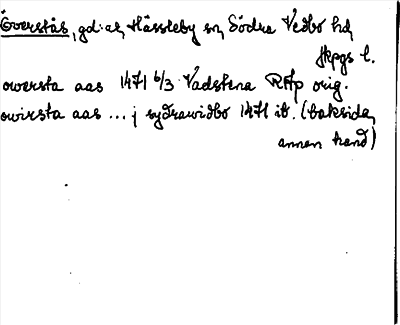 Överstås, gd:ar, Hässleby sn, Södra Vedbo hd,
Jkpgs l.
owersta aas 1471 6/3 Vadstena RAp orig.
owirsta aas ... j sydrawidbo 1471 ib. (baksida,
annan hand)